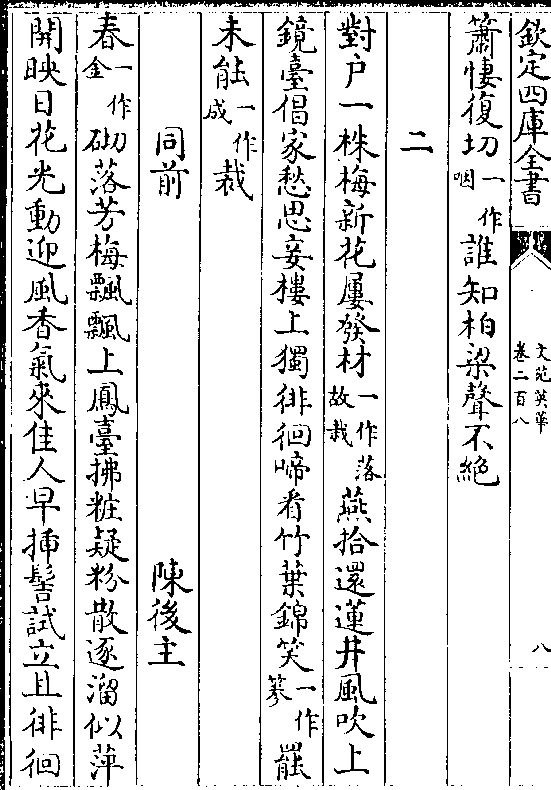 欽定四庫全書
文苑英華
卷二百八
八
簫悽復切一作咽誰知柏梁聲不絶
二
對户一株梅新花屢發材一作落故栽燕拾還蓮井風吹上
鏡臺倡家愁思妾樓上獨徘徊啼看竹葉錦笑一作篸罷
未能一作成裁
同前　陳後主
春一作金砌落芳梅飄飄上鳳臺拂粧疑粉散逐溜似萍
開映日花光動迎風香氣來佳人早揷髻試立且徘徊